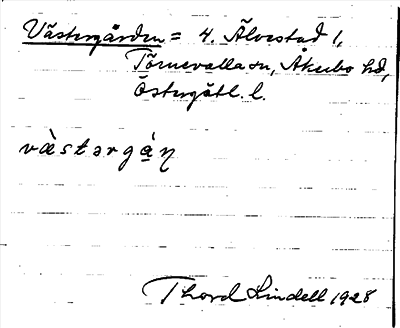 Västergården = 4. Älvestad 1,
Törnevalla sn, Åkerbo hd,
Östergötl. l.
västərgá̱ɳ
Thord Lindell 1928